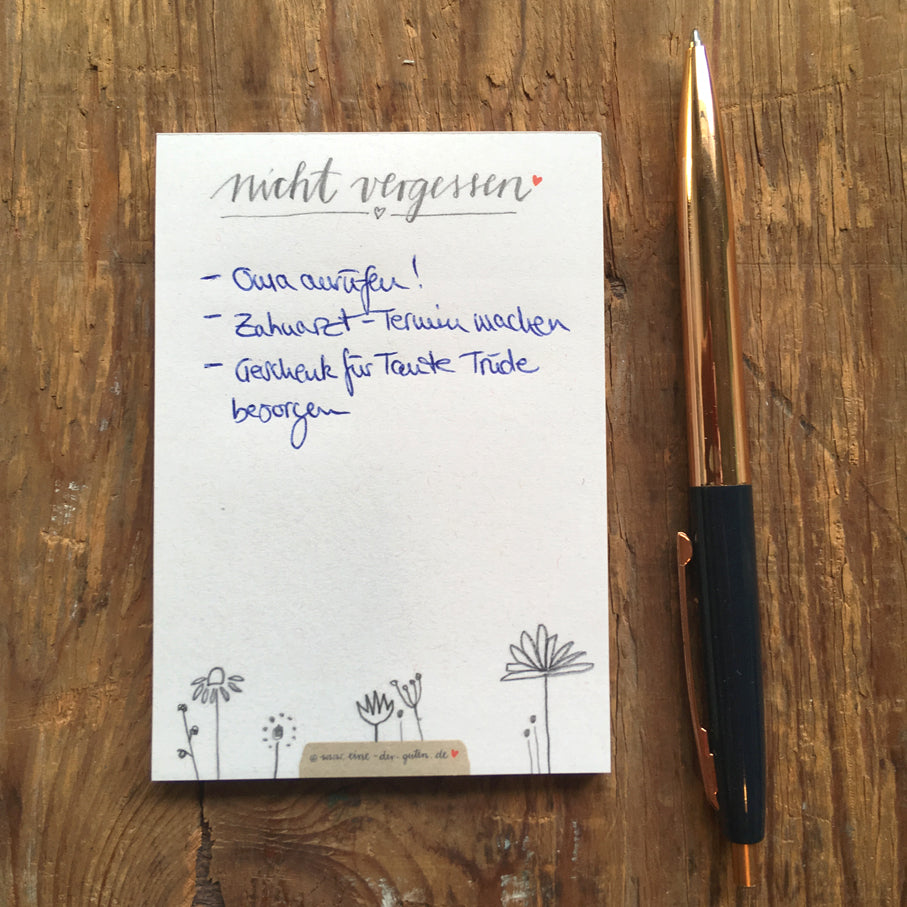 nicht vergessen
- Oma anrufen!
- Zahnarzt-Termin machen
- Geschenk für Tante Trude
besorgen
© www.eine-der-guten.de